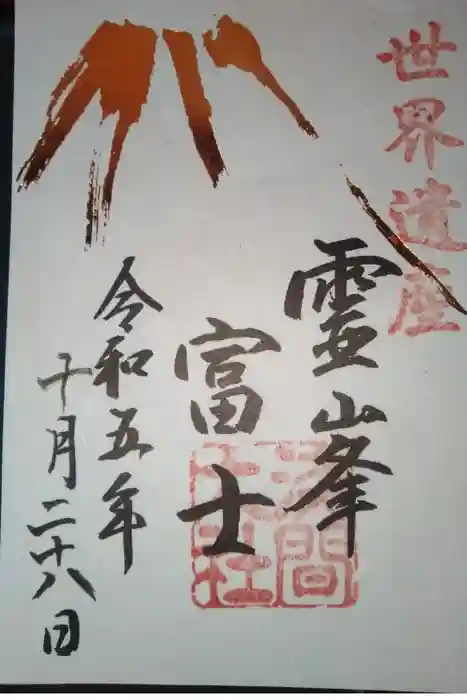 世界遺産
靈峯
富士
浅間
大社
令和五年
十月二十八日